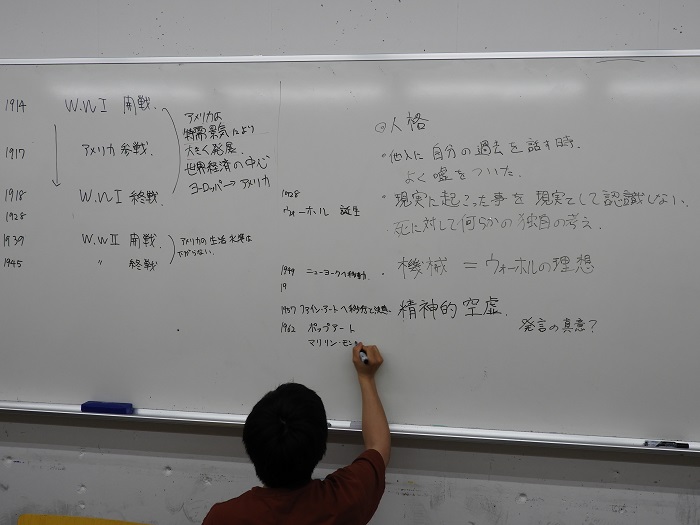 1914 W.W I 開戦.
1917 アメリカ 参戦.
1918 W.W I 終戦.
1928
1939 W.W II 開戦.
1945 〃 終戦
アメリカは
特需景気により
大きく発展.
世界経済の中心
ヨーロッパ→アメリカ
アメリカの生活水準は
下がらない.
1928
ウォーホル 誕生
1949 ニューヨークへ
19
1957 ファイン・アートへ
1962 ポップアート
マリリン・モン
人格
・他人に自分の過去を話す時.
よく嘘をついた.
・現実に起こった事を現実として認識しない.
死に対して何らかの独自の考え.
・機械 = ウォーホルの理想
精神的空虚.
発言の真意?